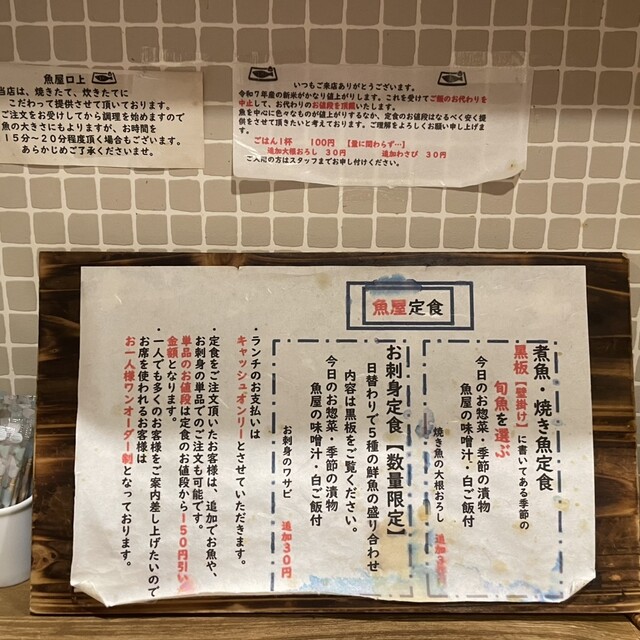 魚屋口上
当店は、焼きたて、炊きたてに
こだわって提供させて頂いております。
ご注文をお受けしてから調理を始めますので
魚の大きさにもよりますが、お時間を
15分~20分程度頂く場合もございます。
あらかじめご了承くださいませ。
いつもご来店ありがとうございます。
令和7年産の新米がかなり値上がりします。これを受けてご飯のお代わりを
中止して、お代わりのお値段を頂戴いたします。
魚を中心に色々なものが値上がりするなか、定食のお値段はなるべく安く提
供をさせて頂きたいと考えております。ご理解をよろしくお願い申し上げま
す。
ごはん1杯 100円 【量に関わらず…】
追加大根おろし 30円 追加わさび 30円
ご入用の方はスタッフまでお申し付けください。
魚屋定食
煮魚・焼き魚定食
黒板【壁掛け】に書いてある季節の
旬魚を選ぶ
今日のお惣菜・季節の漬物
魚屋の味噌汁・白ご飯付
焼き魚の大根おろし 追加30円
お刺身定食【数量限定】
日替わりで5種の鮮魚の盛り合わせ
内容は黒板をご覧ください。
今日のお惣菜・季節の漬物
魚屋の味噌汁・白ご飯付
お刺身のワサビ 追加30円
・ランチのお支払いは
キャッシュオンリーとさせていただきます。
・定食をご注文頂いたお客様は、追加でお魚や、
お刺身の単品でのご注文も可能です。
単品のお値段は定食のお値段から150円引いた
金額となります。
・一人でも多くのお客様をご案内差し上げたいので
お席を使われるお客様は
お一人様ワンオーダー制となっております。